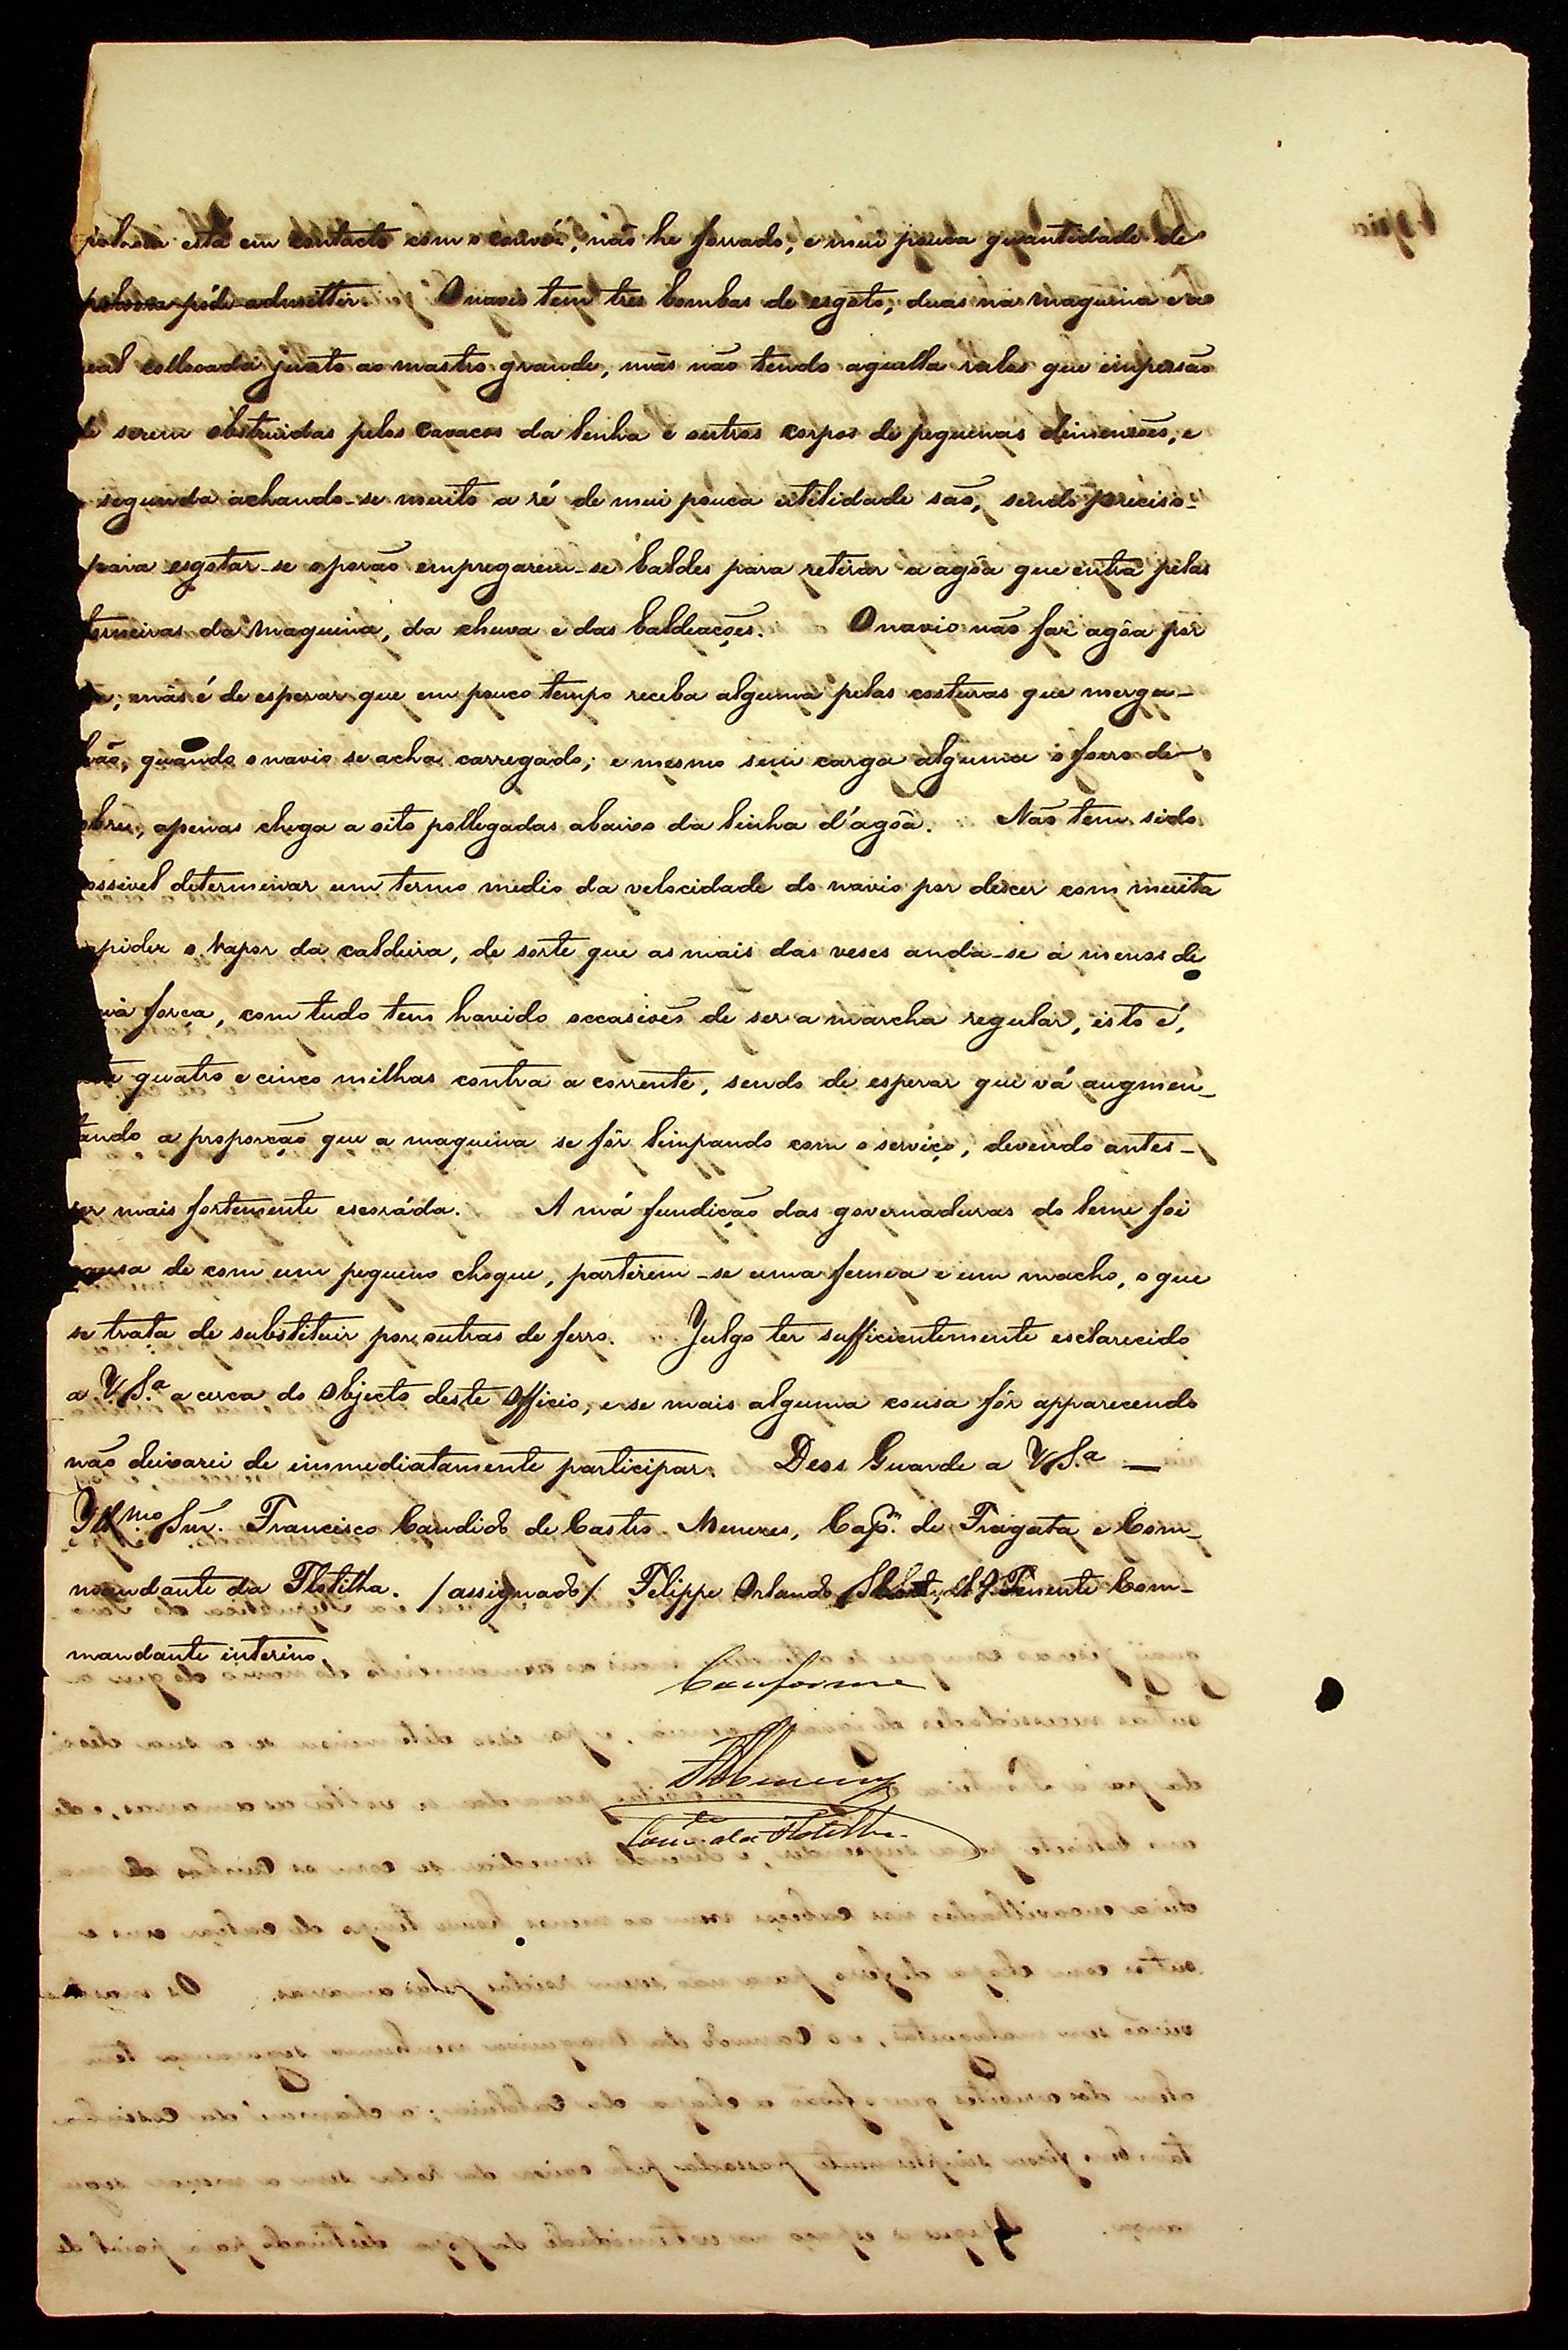 polvora está em contacto com o convéz, não he forrado, e mui pouca quantidade de
polvora póde admittir. O navio tem tres bombas de esgoto; duas na maquina e a
real collocada junto ao mastro grande, mas não tendo aquella ralos que impessão
de serem obstruidas pelos cavacos da lenha e outros corpos de pequenas dimensões, e
segunda achando-se muito a ré de mui pouca utilidade são, sendo preciso
para esgotar-se o porão empregarem-se baldes para retirar a agôa que entra pelas
torneiras da maquina, da chuva e das baldeações. O navio não faz agôa por
; mas é de esperar que em pouco tempo receba alguma pelas costuras que mergu-
lhão, quando o navio se acha carregado; e mesmo sem carga alguma o forro de
obre, apenas chega a oito pollegadas abaixo da linha d'agôa. Não tem sido
ossivel determinar um termo medio da velocidade do navio por descer com muita
apidez o vapor da caldeira, de sorte que as mais das veses anda-se a menos de
meia força, com tudo tem havido occasiões de ser a marcha regular, isto é,
quatro e cinco milhas contra a corrente, sendo de esperar que vá augmen-
tando a proporção que a maquina se fôr limpando com o serviço, devendo antes
ser mais fortemente escoráda. A má fundição das governaduras do leme foi
causa de com um pequeno choque, partirem-se uma femea e um macho, o que
se trata de substituir por outras de ferro. Julgo ter sufficientemente esclarecido
a V.S.ª a cerca do objecto deste officio, e se mais alguma cousa fôr apparecendo
não deixarei de immediatamente participar. Deos Guarde a V.S.ª —
Ill.mo Snr. Francisco Candido de Castro Menezes, Cap.m de Fragata e Com-
mandante da Flotilha. /assignado/ Felippe Orlando Short, 1.º Tenente Com-
mandante interino.
Conforme
Menezes
Com.te da Flotilha.